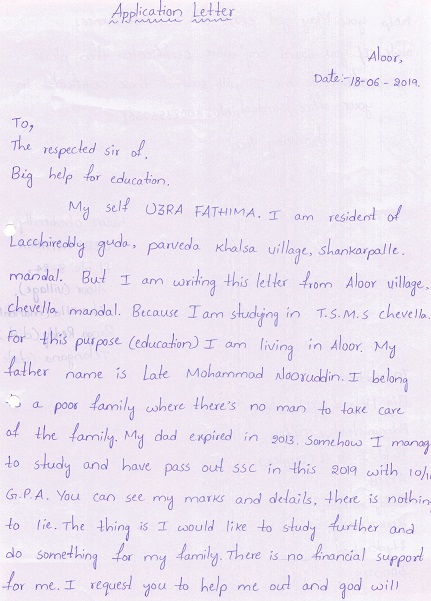 Application Letter
Aloor,
Date:-18-06-2019.
To,
The respected sir of.
Big help for education.
My self UZRA FATHIMA. I am resident of
Lacchireddy guda, parveda khalsa village, shankarpalle.
mandal. But I am writing this letter from Aloor village,
chevella mandal. Because I am studying in T.S.M.S chevella.
For this purpose (education) I am living in Aloor. My
father name is Late Mohammad Nooruddin. I belong
a poor family where there's no man to take care
of the family. My dad expired in 2013. Somehow I manag
to study and have pass out ssc in this 2019 with 10/10
G.P.A. You can see my marks and details, there is nothin
to lie. The thing is I would like to study further and
do something for my family. There is no financial support
for me. I request you to help me out and god will